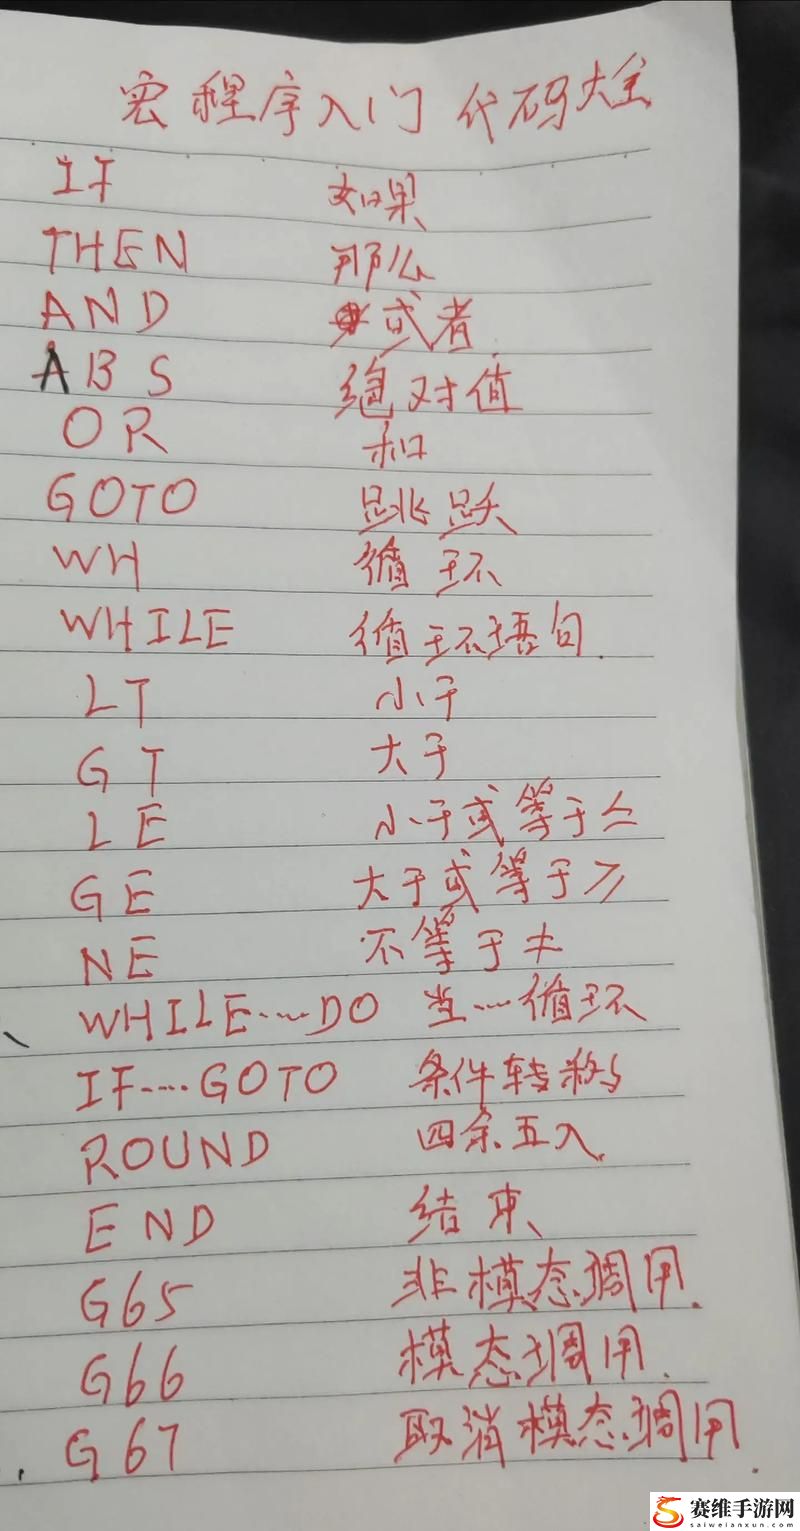 宏程序入门 代码大全
IF 如果
THEN 那么
AND 或者
ABS 绝对值
OR 和
GOTO 跳跃
WH 循环
WHILE 循环语句.
LT 小于
GT 大于
LE 小于或等于≤
GE 大于或等于≥
NE 不等于≠
WHILE……DO 当…循环
IF……GOTO 条件转移
ROUND 四余五入.
END 结束
G65 非模态调用.
G66 模态调用.
G67 取消模态调用.
赛维手游网
saiweianxun.com